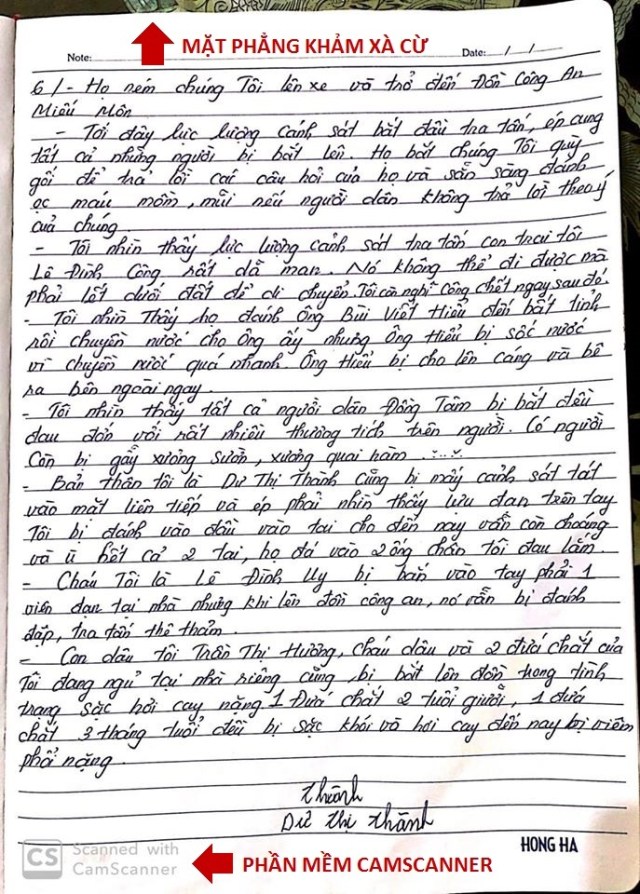 MẶT PHẲNG KHẢM XÀ CỪ
Note:
Date: / /
6/- Họ ném chúng Tôi lên xe và trở đến Đồn Công An
Miếu Môn
- Tới đây lực lượng cảnh sát bắt đầu tra tấn, ép cung
tất cả những người bị bắt lên. Họ bắt chúng Tôi quỳ
gối để trả lời các câu hỏi của họ và sẵn sàng đánh
ọc máu mồm, mũi nếu người dân không trả lời theo ý
của chúng
- Tôi nhìn thấy lực lượng cảnh sát tra tấn con trai tôi
Lê Đình Công rất dã man. Nó không thể đi được mà
phải lết dưới đất để di chuyển. Tôi còn nghĩ Công chết ngay sau đó.
- Tôi nhìn Thấy họ đánh Ông Bùi Viết Hiểu đến bất tỉnh
rồi chuyền nước cho Ông ấy nhưng Ông Hiểu bị sốc nước
vì chuyền nước quá nhanh. Ông Hiểu bị cho lên cáng và bê
ra bên ngoài ngay.
- Tôi nhìn thấy tất cả người dân Đồng Tâm bị bắt đều
đau đớn với rất nhiều thương tích trên người. Có người
Còn bị gẫy xương sườn, xương quai hàm .....
- Bản thân tôi là Dư Thị Thành cũng bị mấy cảnh sát tát
vào mặt liên tiếp và ép phải nhìn thấy lựu đạn trên tay
Tôi bị đánh vào đầu vào tai cho đến nay vẫn còn choáng
và ù hết cả 2 tai, họ đá vào 2 ống chân tôi đau lắm.
- Cháu Tôi là Lê Đình Uy bị bắn vào tay phải 1
viên đạn tại nhà nhưng khi lên đồn công an, nó vẫn bị đánh
đập, tra tấn thê thảm.
- Con dâu tôi Trần Thị Hương, cháu dâu và 2 đứa chắt của
Tôi đang ngủ tại nhà riêng cũng bị bắt lên đồn trong tình
trạng sặc hơi cay nặng 1 Đứa chắt 2 tuổi giưỡi, 1 đứa
chắt 3 tháng tuổi đều bị sặc khói và hơi cay đến nay bị viêm
phổi nặng.
Thành
Dư Thị Thành
HONG HA
CS Scanned with
CamScanner
PHẦN MỀM CAMSCANNER